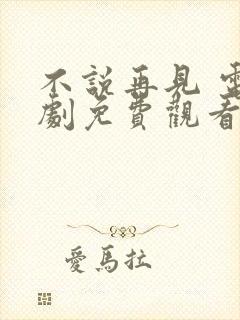 不說再見 電
劇免費觀看
愛馬拉